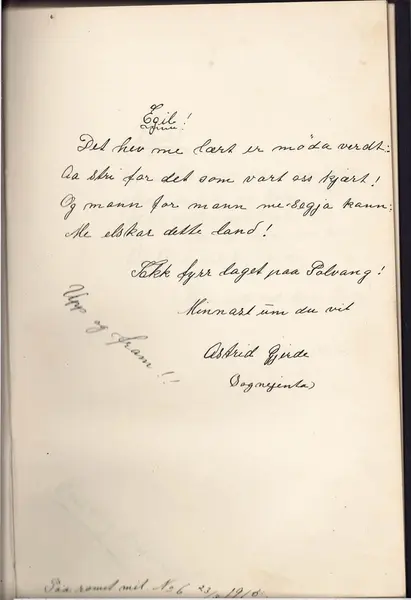 Egil!
Det hev me lært er möda verdt:
Aa stri for det som vart oss kjært!
Og mann for mann me segja kann:
Me elskar dette land!
Takk fyrr laget paa Solvang!
Minnast um du vil
Astrid Gjerde
Sognejenta
Upp og fram!!
Paa romet mit No 6 23/